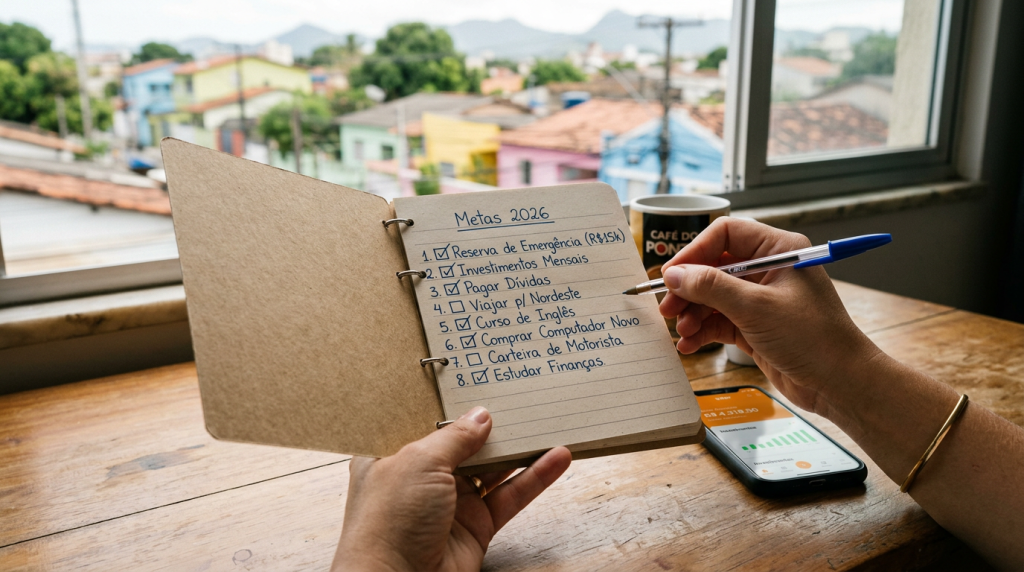 Metas 2026
1. ☑ Reserva de Emergência (R$15k)
2. ☑ Investimentos Mensais
3. ☑ Pagar Dívidas
4. ☐ Viajar p/ Nordeste
5. ☑ Curso de Inglês
6. ☑ Comprar Computador Novo
7. ☐ Carteira de Motorista
8. ☑ Estudar Finanças
CAFÉ DO